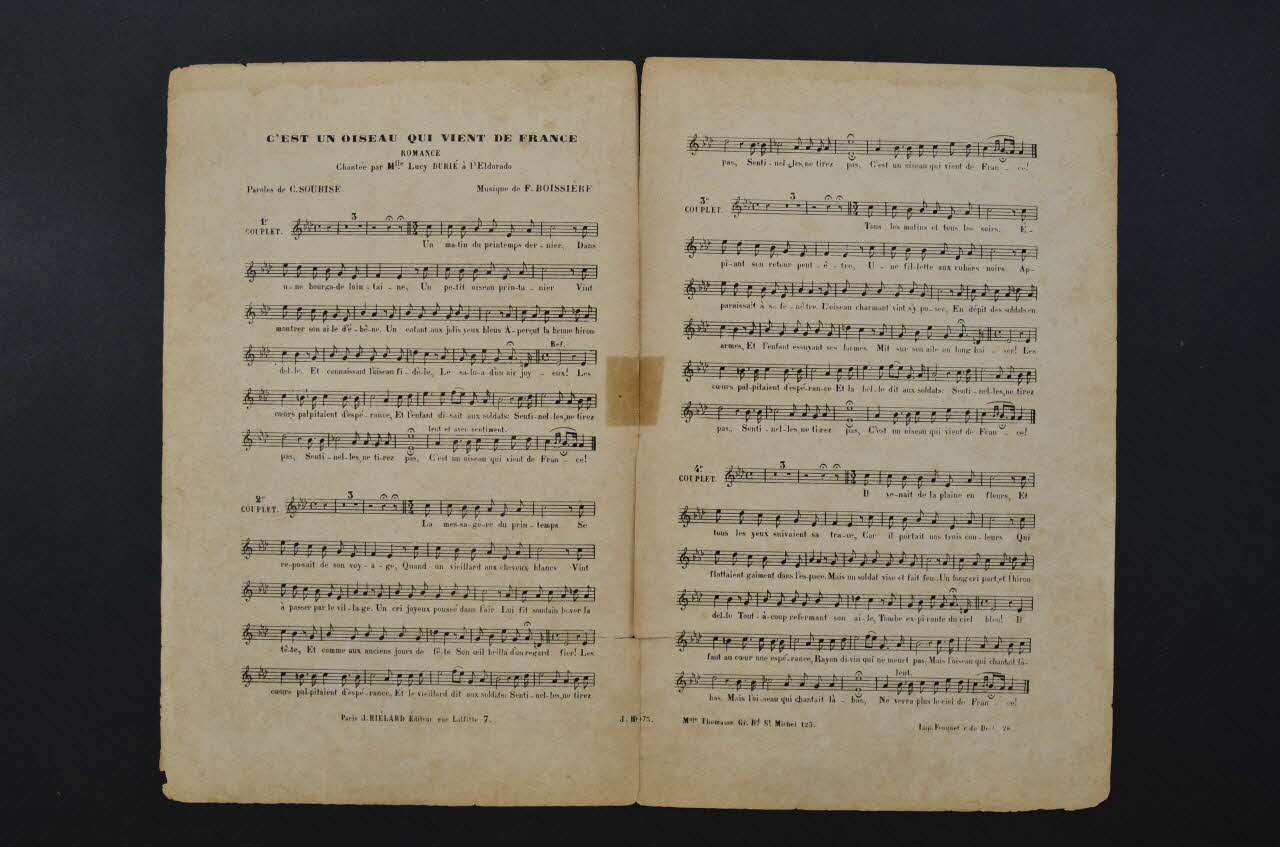 C'EST UN OISEAU QUI VIENT DE FRANCE
ROMANCE
Chantée par Mlle Lucy DURIÉ à l'Eldorado
Paroles de C. SOUBISE Musique de F. BOISSIÈRE
1r COUPLET.
3
Un ma-tin du printemps der-nier, Dans
u-ne bourga-de loin-tai-ne, Un pe-tit oiseau prin-ta-nier Vint
montrer son ai-le d'é-bè-ne. Un enfant aux jolis yeux bleus A-perçut la brune hiron-
Ref.
del-le. Et connaissant l'oiseau fi-dè-le, Le sa-lu-a d'un air joy-eux! Les
cœurs palpitaient d'espé-rance, Et l'enfant di-sait aux soldats: Senti-nel-les, ne tirez
lent et avec sentiment.
pas, Senti-nel-les, ne ti-rez pas, C'est un oiseau qui vient de Fran-ce!
2e COUPLET.
3
La mes-sa-gè-re du prin-temps Se
re-po-sait de son voy-a-ge, Quand un vieillard aux cheveux blancs Vint
à passer par le vil-la-ge. Un cri joyeux poussé dans l'air Lui fit soudain le-ver la
tê-te, Et comme aux anciens jours de fê-te Son œil brilla d'un regard fier! Les
cœurs pal-pitaient d'espé-rance. Et le vieillard dit aux soldats: Senti-nel-les, ne tirez
Paris J. HIÉLARD Éditeur rue Laffitte 7.
pas, Senti-nel-les, ne tirez pas, C'est un oiseau qui vient de Fran-ce!
3e COUPLET.
3
Tous les matins et tous les soirs. E-
pi-ant son retour peut-ê-tre, U-ne fil-lette aux rubans noirs. Ap-
paraissait à sa fe-nêtre. L'oiseau charmant vint s'y po-ser, En dépit des soldats en
armes, Et l'enfant essuyant ses larmes. Mit sur son aile un long bai-ser! Les
cœurs pal-pitaient d'espé-ran-ce Et la bel-le dit aux soldats: Senti-nel-les, ne tirez
pas, Senti-nel-les, ne ti-rez pas, C'est un oiseau qui vient de Fran-ce!
4e COUPLET.
3
Il ve-nait de la plaine en fleurs, Et
tous les yeux suivaient sa tra-ce, Car il portait nos trois cou-leurs Qui
flottaient gaiment dans l'es-pace. Mais un soldat vise et fait feu. Un long cri part, et l'hiron-
del-le Tout-à-coup refermant son ai-le, Tombe ex-pi-rante du ciel bleu! Il
faut au cœur une espé-rance, Rayon di-vin qui ne meurt pas, Mais l'oiseau qui chantait là-
lent.
bas. Mais l'oi-seau qui chantait là-bas, Ne verra plus le ciel de Fran-ce!
Mme Thomasse Gr. Bd St Michel 125.
Imp. Fouquet r. du 26.